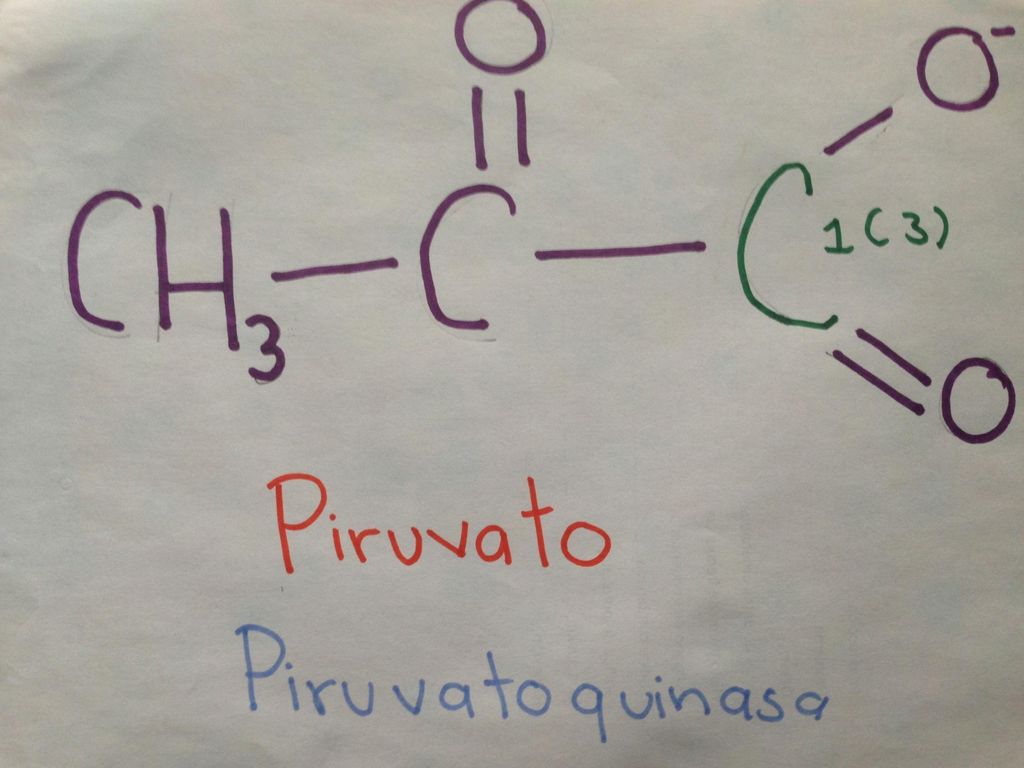 O O⁻
CH₃ — C — C 1(3)
O
Piruvato
Piruvatoquinasa